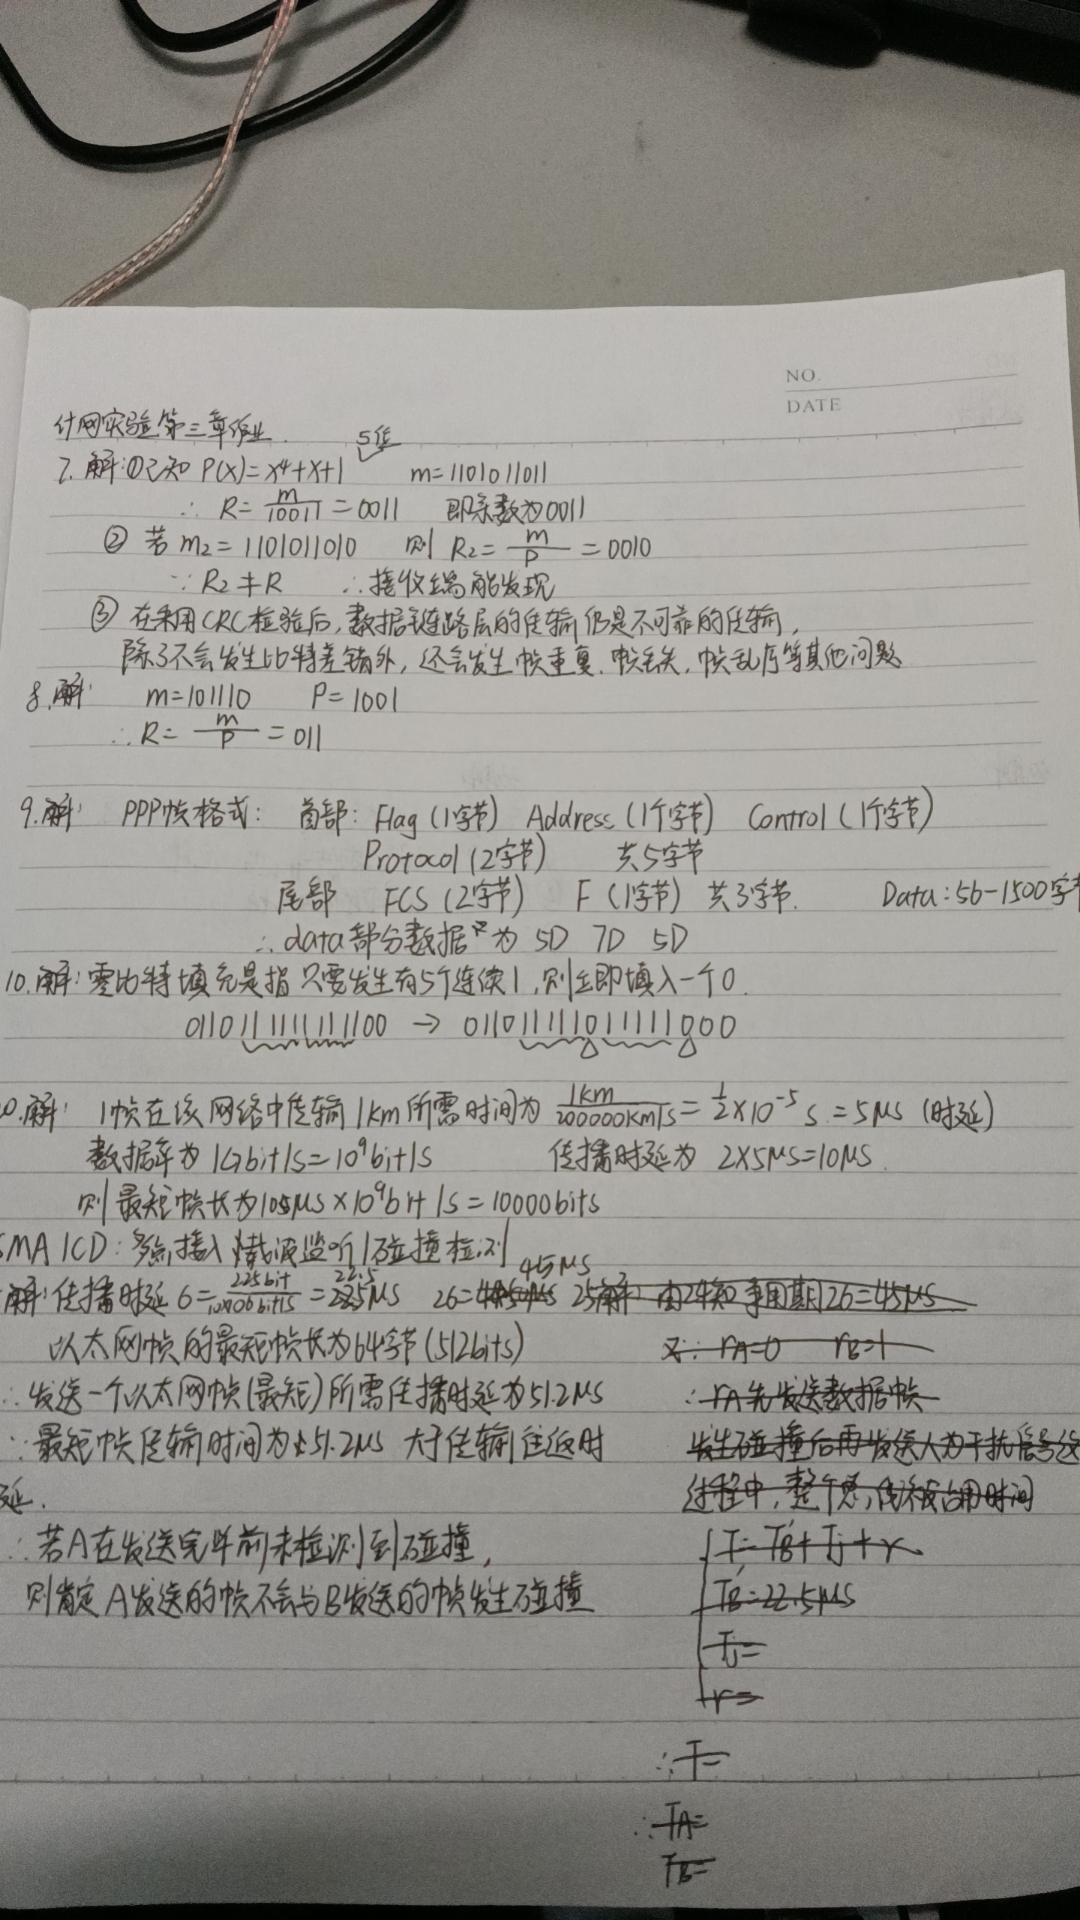 NO.
DATE
计网实验第三章作业
5位
7. 解:①已知 P(X)=X⁴+X+1 m=1101011011
∴ R= m/10011 =0011 即余数为0011
② 若 m2=1101011010 则 R2= m/P =0010
∵ R2≠R ∴接收端能发现
③ 在采用CRC检验后,数据链路层的传输仍是不可靠的传输,
除了不会发生比特差错外,还会发生帧重复、帧丢失,帧乱序等其他问题
8.解: m=101110 P=1001
∴ R= m/P =011
9.解: PPP帧格式: 首部: Flag (1字节) Address (1个字节) Control (1个字节)
Protocol (2字节) 共5字节
尾部 FCS (2字节) F (1字节) 共3字节. Data:56-1500字节
∴ data部分数据只为 5D 7D 5D
10.解: 零比特填充是指只要发生有5个连续1,则立即填入一个0.
0110111111111100 → 011011111011111000
0.解: 1帧在该网络中传输1km所需时间为 1km/200000km/s = 1/2×10⁻⁵ s = 5μs (时延)
数据率为 1Gbit/s=10⁹bit/s 传播时延为 2×5μs=10μs.
则最短帧长为10μs×10⁹bit/s=10000bits
SMA/CD: 多点接入/载波监听/碰撞检测
解: 传播时延 6= 225bit/10×10⁶bit/s = 22.5μs 26= 45μs 25解: 由24知争用期26=45μs
以太网帧的最短帧长为64字节(512bits) 又∵ rA=0 rB=1
∴ 发送一个以太网帧(最短)所需传播时延为51.2μs ∴ rA先发送数据帧
∵ 最短帧传输时间为51.2μs 大于传输往返时 发生碰撞后再发送人为干扰信号
延. 过程中,整个
∴ 若A在发送完毕前未检测到碰撞, T=TB+Tj+r
则肯定A发送的帧不会与B发送的帧发生碰撞 TB=22.5μs
Tj=
r=
∴ T=
∴ TA=
TB=